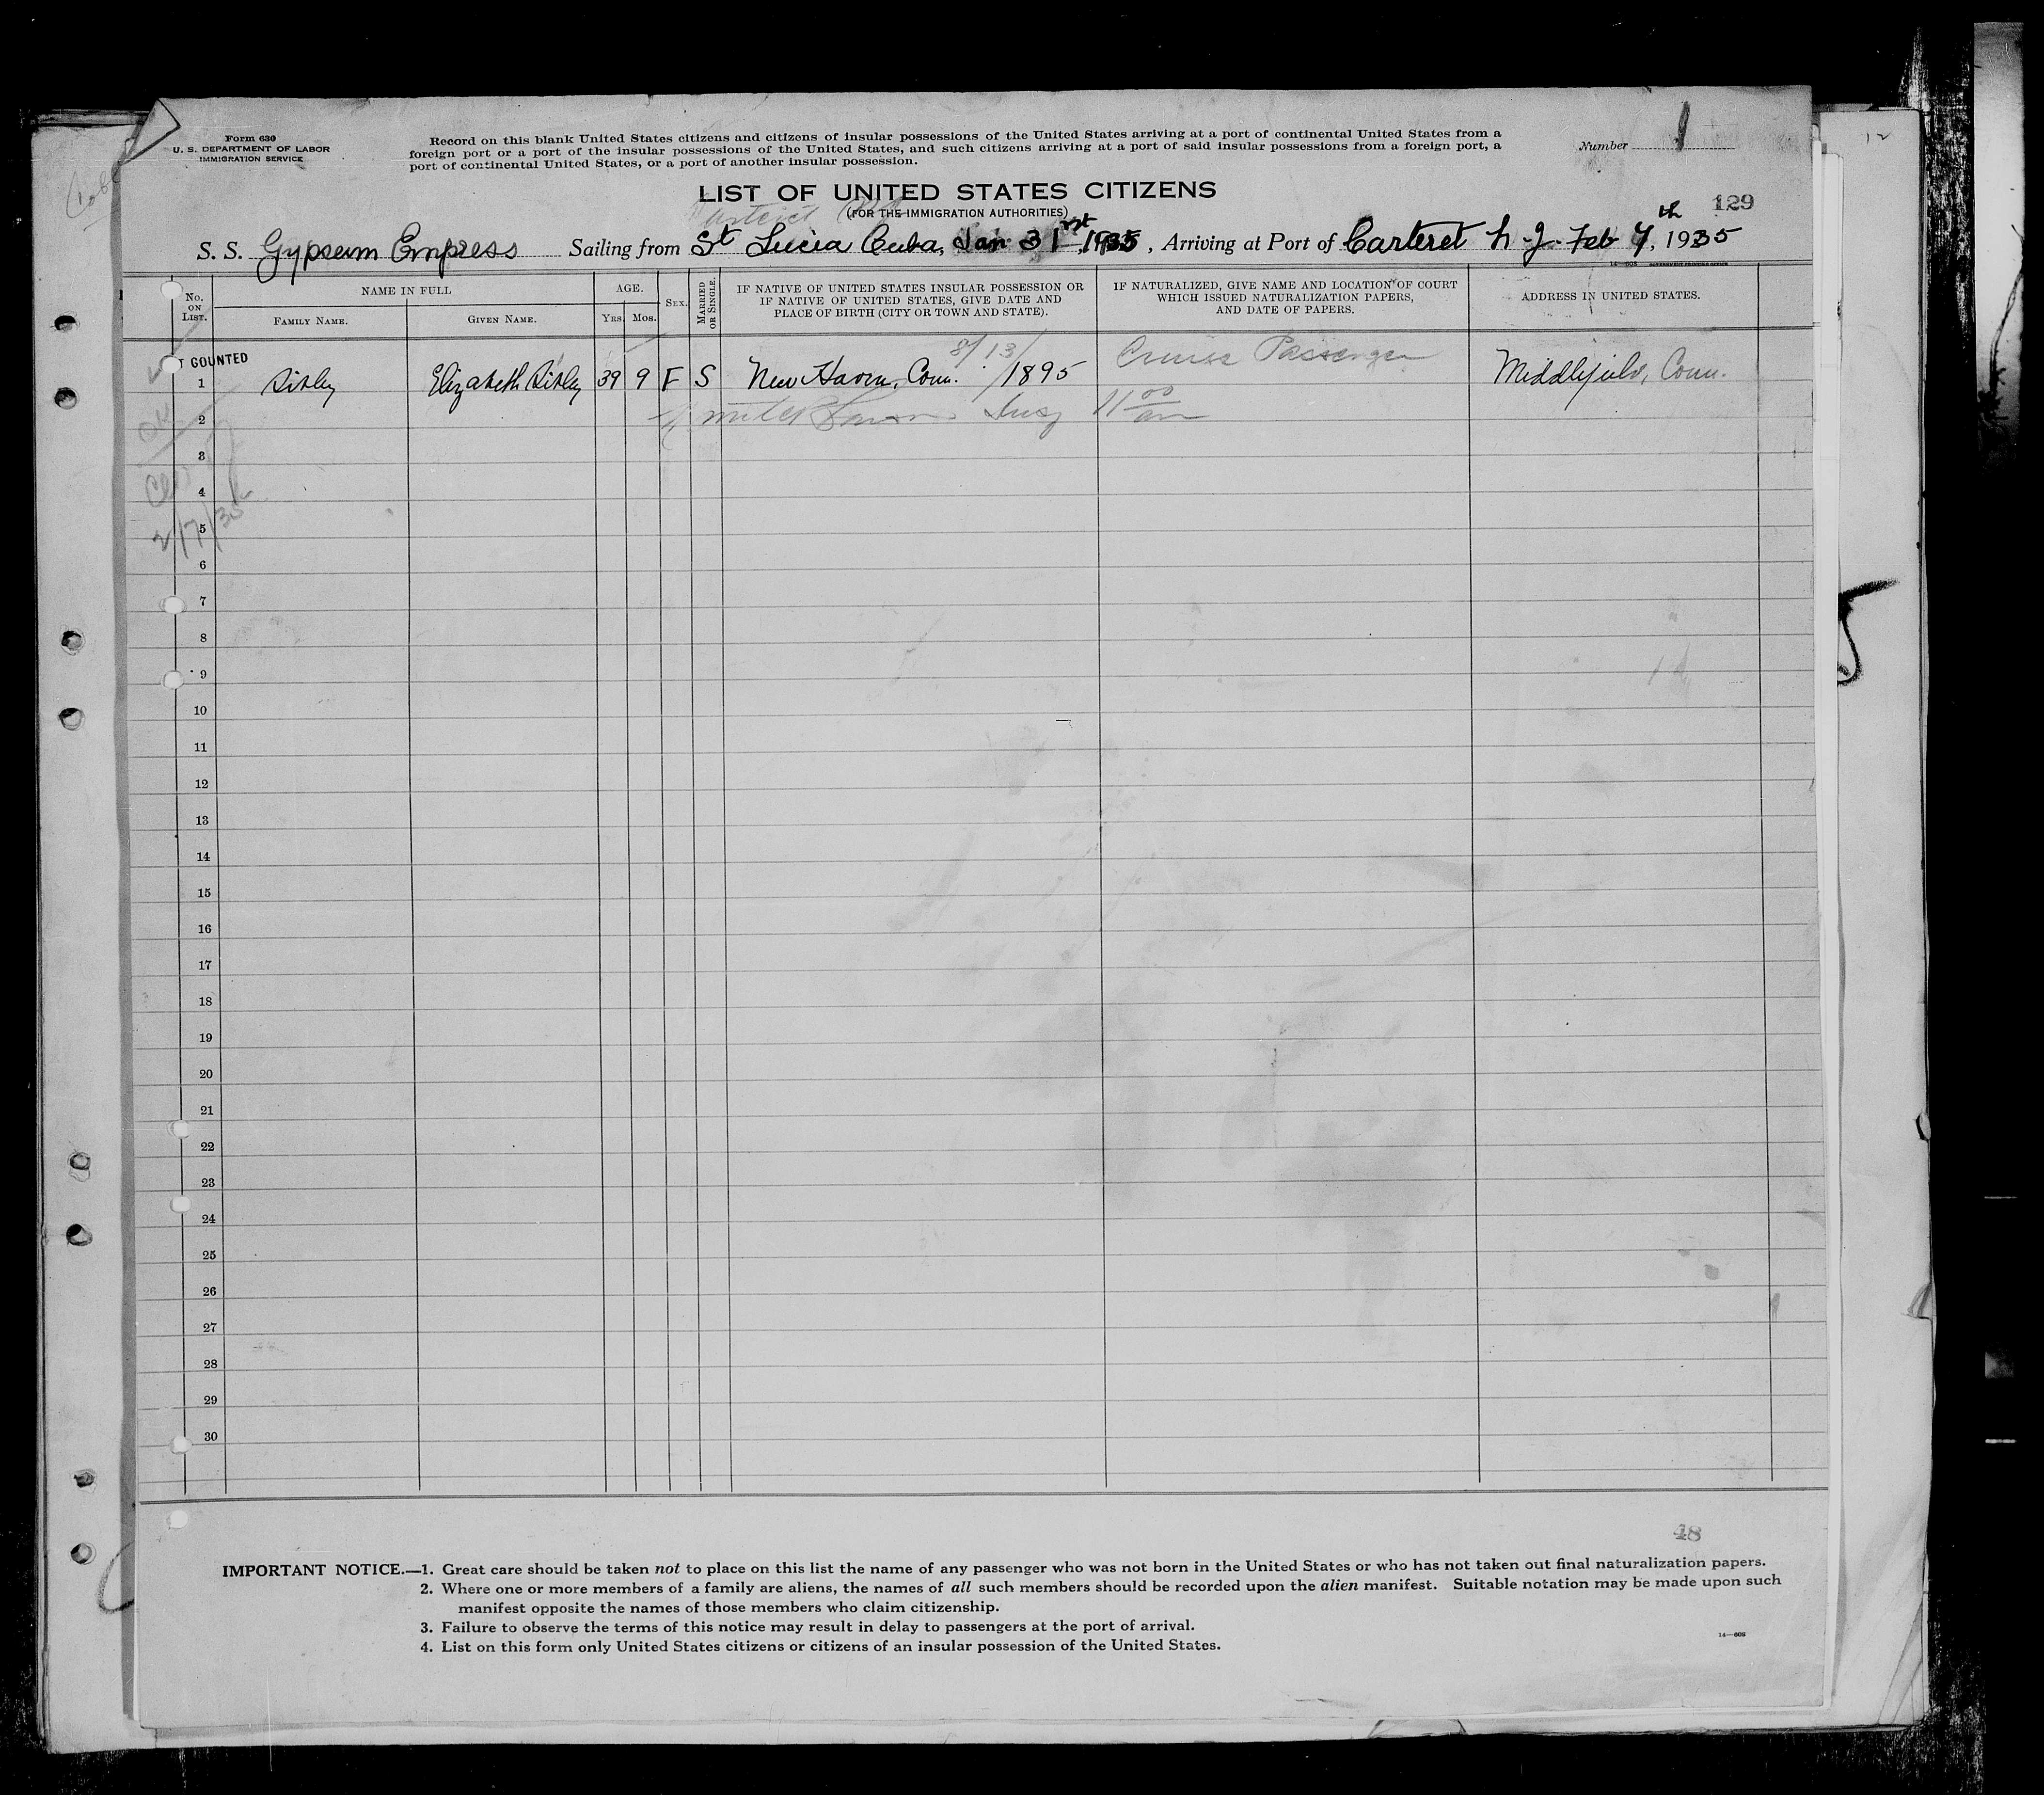 Form 630
U. S. DEPARTMENT OF LABOR
IMMIGRATION SERVICE
Record on this blank United States citizens and citizens of insular possessions of the United States arriving at a port of continental United States from a
foreign port or a port of the insular possessions of the United States, and such citizens arriving at a port of said insular possessions from a foreign port, a
port of continental United States, or a port of another insular possession.
Number 1
LIST OF UNITED STATES CITIZENS
(FOR THE IMMIGRATION AUTHORITIES)
129
S. S. Gypsum Empress Sailing from St Lucia Cuba, Jan 31st, 1935, Arriving at Port of Carteret N. J. Feb 7th, 1935
14—608 GOVERNMENT PRINTING OFFICE
No. ON LIST.
NAME IN FULL
FAMILY NAME.
GIVEN NAME.
AGE.
YRS. MOS.
SEX.
MARRIED OR SINGLE.
IF NATIVE OF UNITED STATES INSULAR POSSESSION OR
IF NATIVE OF UNITED STATES, GIVE DATE AND
PLACE OF BIRTH (CITY OR TOWN AND STATE).
IF NATURALIZED, GIVE NAME AND LOCATION OF COURT
WHICH ISSUED NATURALIZATION PAPERS,
AND DATE OF PAPERS.
ADDRESS IN UNITED STATES.
T COUNTED
8/13/
Cruise Passenger
1 Sibley Elizabeth Sibley 39 9 F S New Haven, Conn. 1895 Middlefield, Conn.
2 Insp 11 00 am
3
4
5
2/7/35
6
7
8
9
10
11
12
13
14
15
16
17
18
19
20
21
22
23
24
25
26
27
28
29
30
48
IMPORTANT NOTICE.—1. Great care should be taken not to place on this list the name of any passenger who was not born in the United States or who has not taken out final naturalization papers.
2. Where one or more members of a family are aliens, the names of all such members should be recorded upon the alien manifest. Suitable notation may be made upon such
manifest opposite the names of those members who claim citizenship.
3. Failure to observe the terms of this notice may result in delay to passengers at the port of arrival.
4. List on this form only United States citizens or citizens of an insular possession of the United States.
14—608